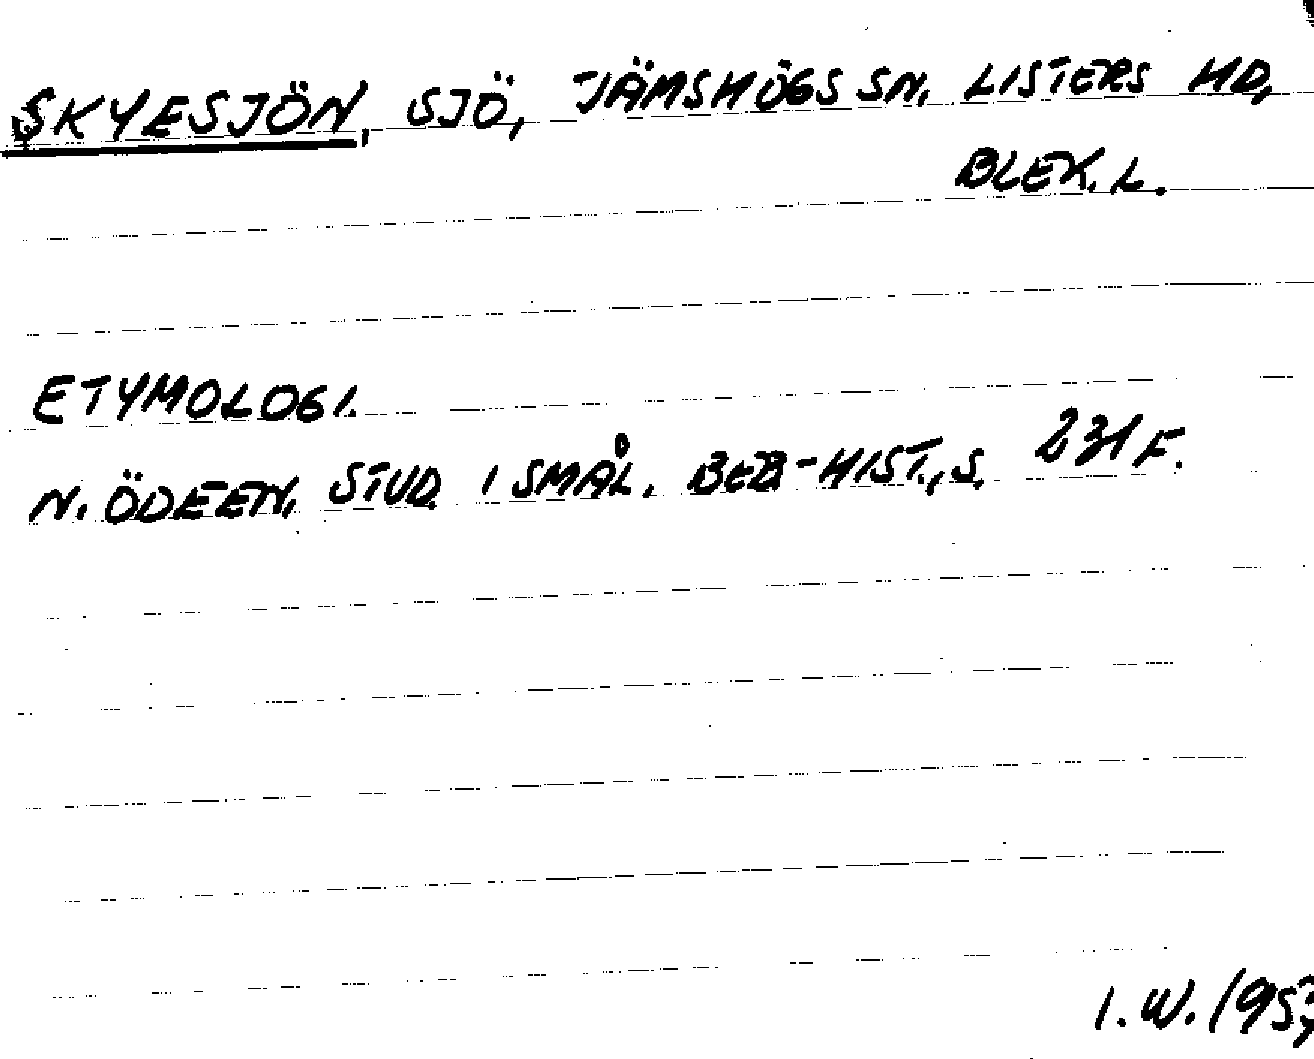 SKYESJÖN, SJÖ, JÄMSHÖGS SN, LISTERS HD,
BLEK. L.
ETYMOLOGI.
N. ÖDEEN, STUD. I SMÅL. BEB-HIST., S. 231 F.
I. W. 1953